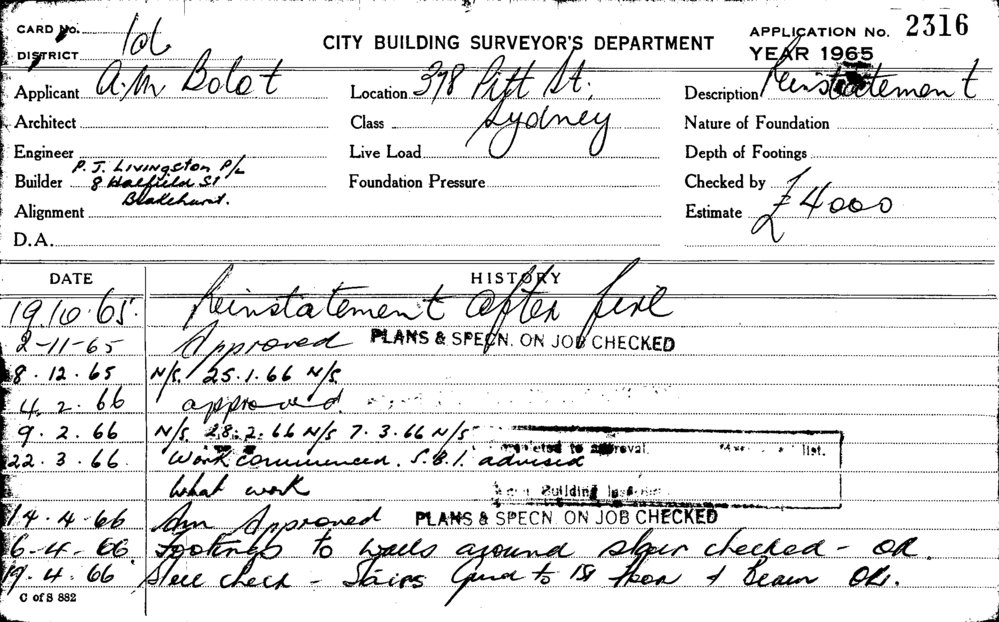 CARD No. 1d
DISTRICT
CITY BUILDING SURVEYOR'S DEPARTMENT
APPLICATION No. 2316
YEAR 1965
Applicant A.M Bolot
Location 378 Pitt St,
Sydney
Description Reinstatement
Architect
Class
Nature of Foundation
Engineer
Live Load
Depth of Footings
P. J. LIVINGSTON P/L
Builder 8 Hatfield St
Blakehurst.
Foundation Pressure
Checked by
Alignment
Estimate £4000
D.A.
DATE HISTORY
19.10.65. Reinstatement after fire
2-11-65 Approved PLANS & SPECN. ON JOB CHECKED
8.12.65 N/S. 25.1.66 N/S.
4.2.66 approved.
9.2.66 N/S 28.2.66 N/S 7.3.66 N/S
to approval. list.
22.3.66. Work commenced. S.B.I. advised
What work
Building
14.4.66 Am Approved PLANS & SPECN. ON JOB CHECKED
6-4-66 Footings to walls around stair checked - OK.
19.4.66 Steel check - Stairs Grnd to 1st floor & Beam OK.
C of S 882